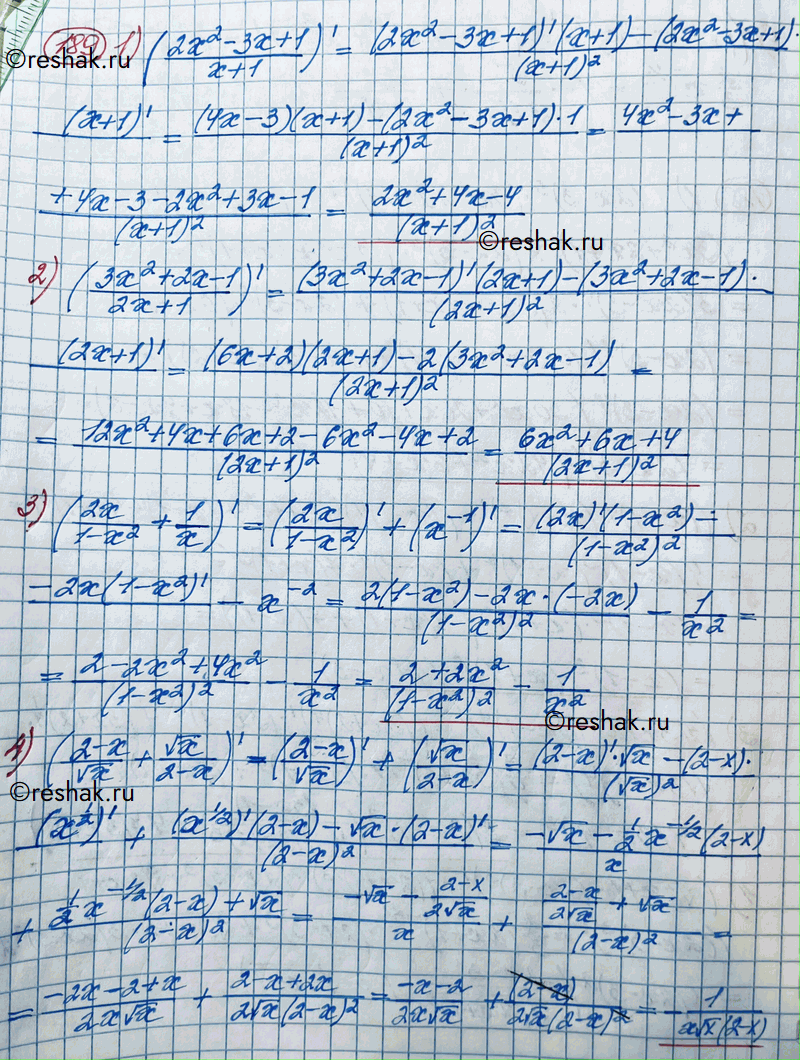 189 1) ((2x² - 3x + 1)/(x+1))' = ((2x² - 3x + 1)'(x+1) - (2x² - 3x + 1)·
©reshak.ru
(x+1)')/(x+1)² = ((4x - 3)(x+1) - (2x² - 3x + 1)·1)/(x+1)² = (4x² - 3x +
+ 4x - 3 - 2x² + 3x - 1)/(x+1)² = (2x² + 4x - 4)/(x+1)²
©reshak.ru
2) ((3x² + 2x - 1)/(2x+1))' = ((3x² + 2x - 1)'(2x+1) - (3x² + 2x - 1)·
(2x+1)')/(2x+1)² = ((6x+2)(2x+1) - 2(3x² + 2x - 1))/(2x+1)² =
= (12x² + 4x + 6x + 2 - 6x² - 4x + 2)/(2x+1)² = (6x² + 6x + 4)/(2x+1)²
3) (2x/(1-x²) + 1/x)' = (2x/(1-x²))' + (x⁻¹)' = ((2x)'(1-x²) -
- 2x(1-x²)')/(1-x²)² - x⁻² = (2(1-x²) - 2x·(-2x))/(1-x²)² - 1/x² =
= (2 - 2x² + 4x²)/(1-x²)² - 1/x² = (2 + 2x²)/(1-x²)² - 1/x²
©reshak.ru
4) ((2-x)/√x + √x/(2-x))' = ((2-x)/√x)' + (√x/(2-x))' = ((2-x)'·√x - (2-x)·
©reshak.ru
(x^½)')/(√x)² + ((x^1/2)'(2-x) - √x·(2-x)')/(2-x)² = (-√x - ½x^-1/2(2-x))/x
+ (½x^-1/2(2-x) + √x)/(2-x)² = (-√x - (2-x)/(2√x))/x + ((2-x)/(2√x) + √x)/(2-x)² =
= (-2x - 2 + x)/(2x√x) + (2 - x + 2x)/(2√x(2-x)²) = (-x-2)/(2x√x) + (2-x)/(2√x(2-x)²) = -1/(x√x(2-x))